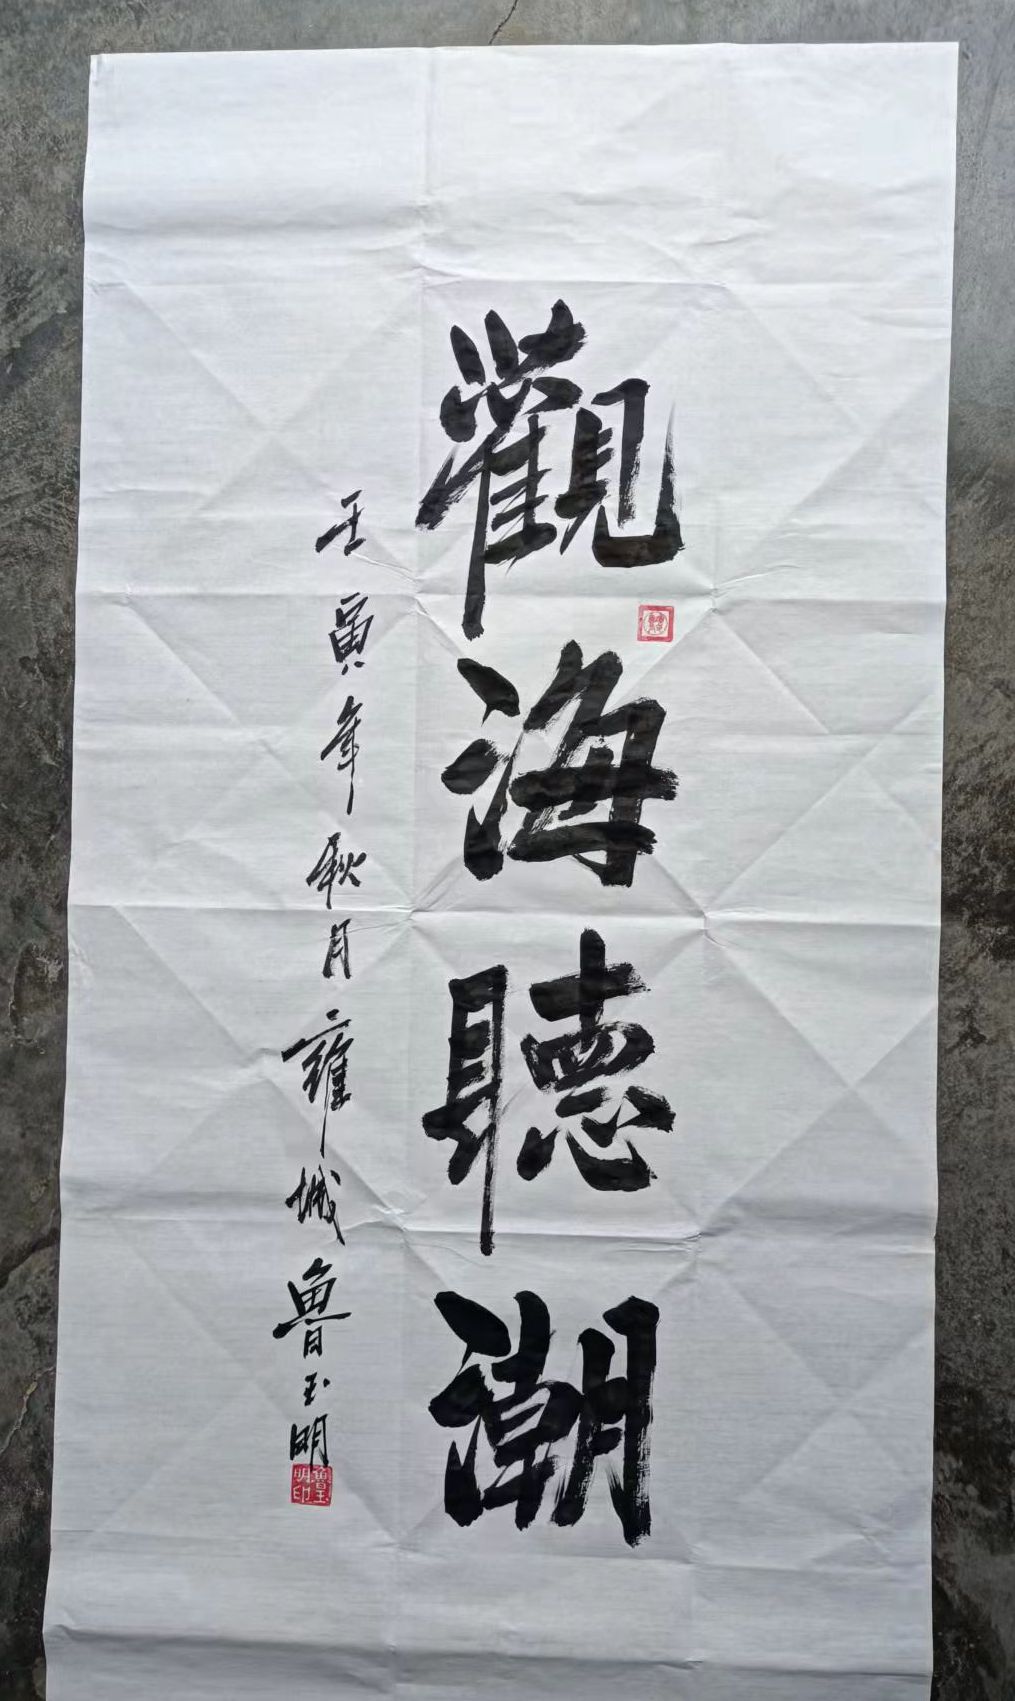 觀海聽潮
壬寅年秋月雍城魯玉明
魯玉明印